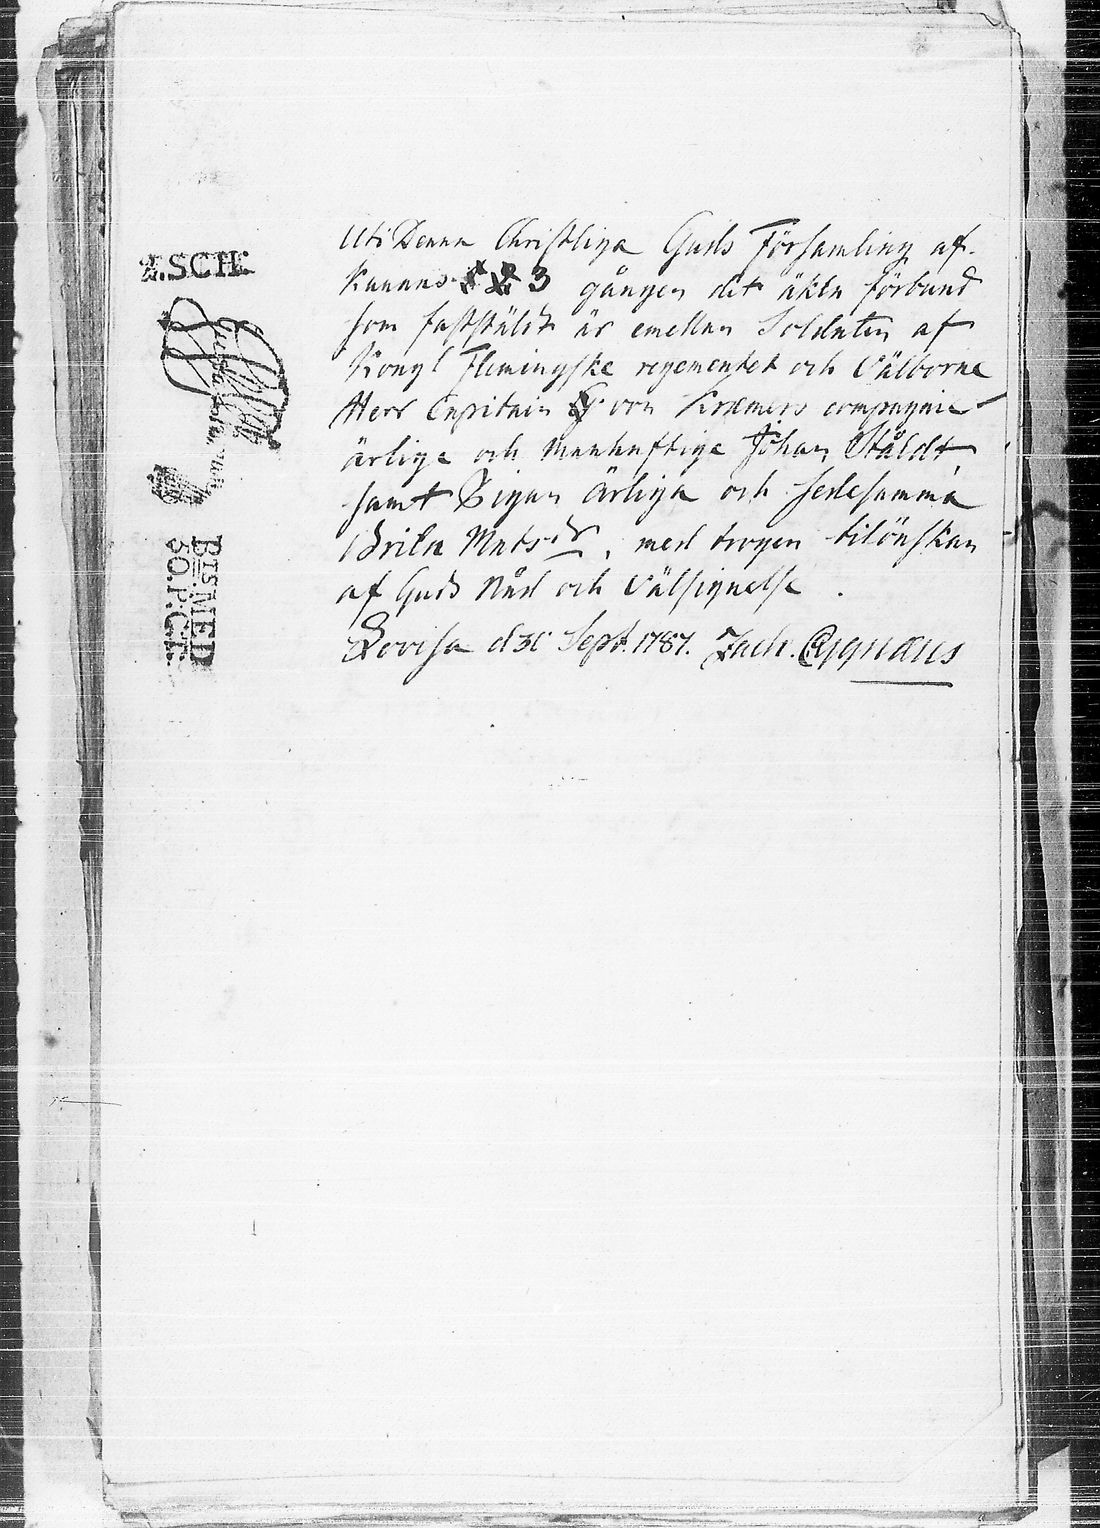 Z.SCH:
Uti Denna Christliga Guds Församling af-
kunnas 1 2 3 gången det äkta förbund
som fastställdt är emellan Soldaten af
Kongl Flemingske regementet och Välborne
Herr Capitain von Kræmers compagnie
ärlige och Manhaftige Johan Ståldt,
samt Pigan ärliga och sedesamma
Brita Mats dr, med trogen tilönskan
af Guds Nåd och Välsignelse.
Lovisa d 30 Sept. 1787. Zach. Cygnæus
BTS.MED
3O.P:C:T.